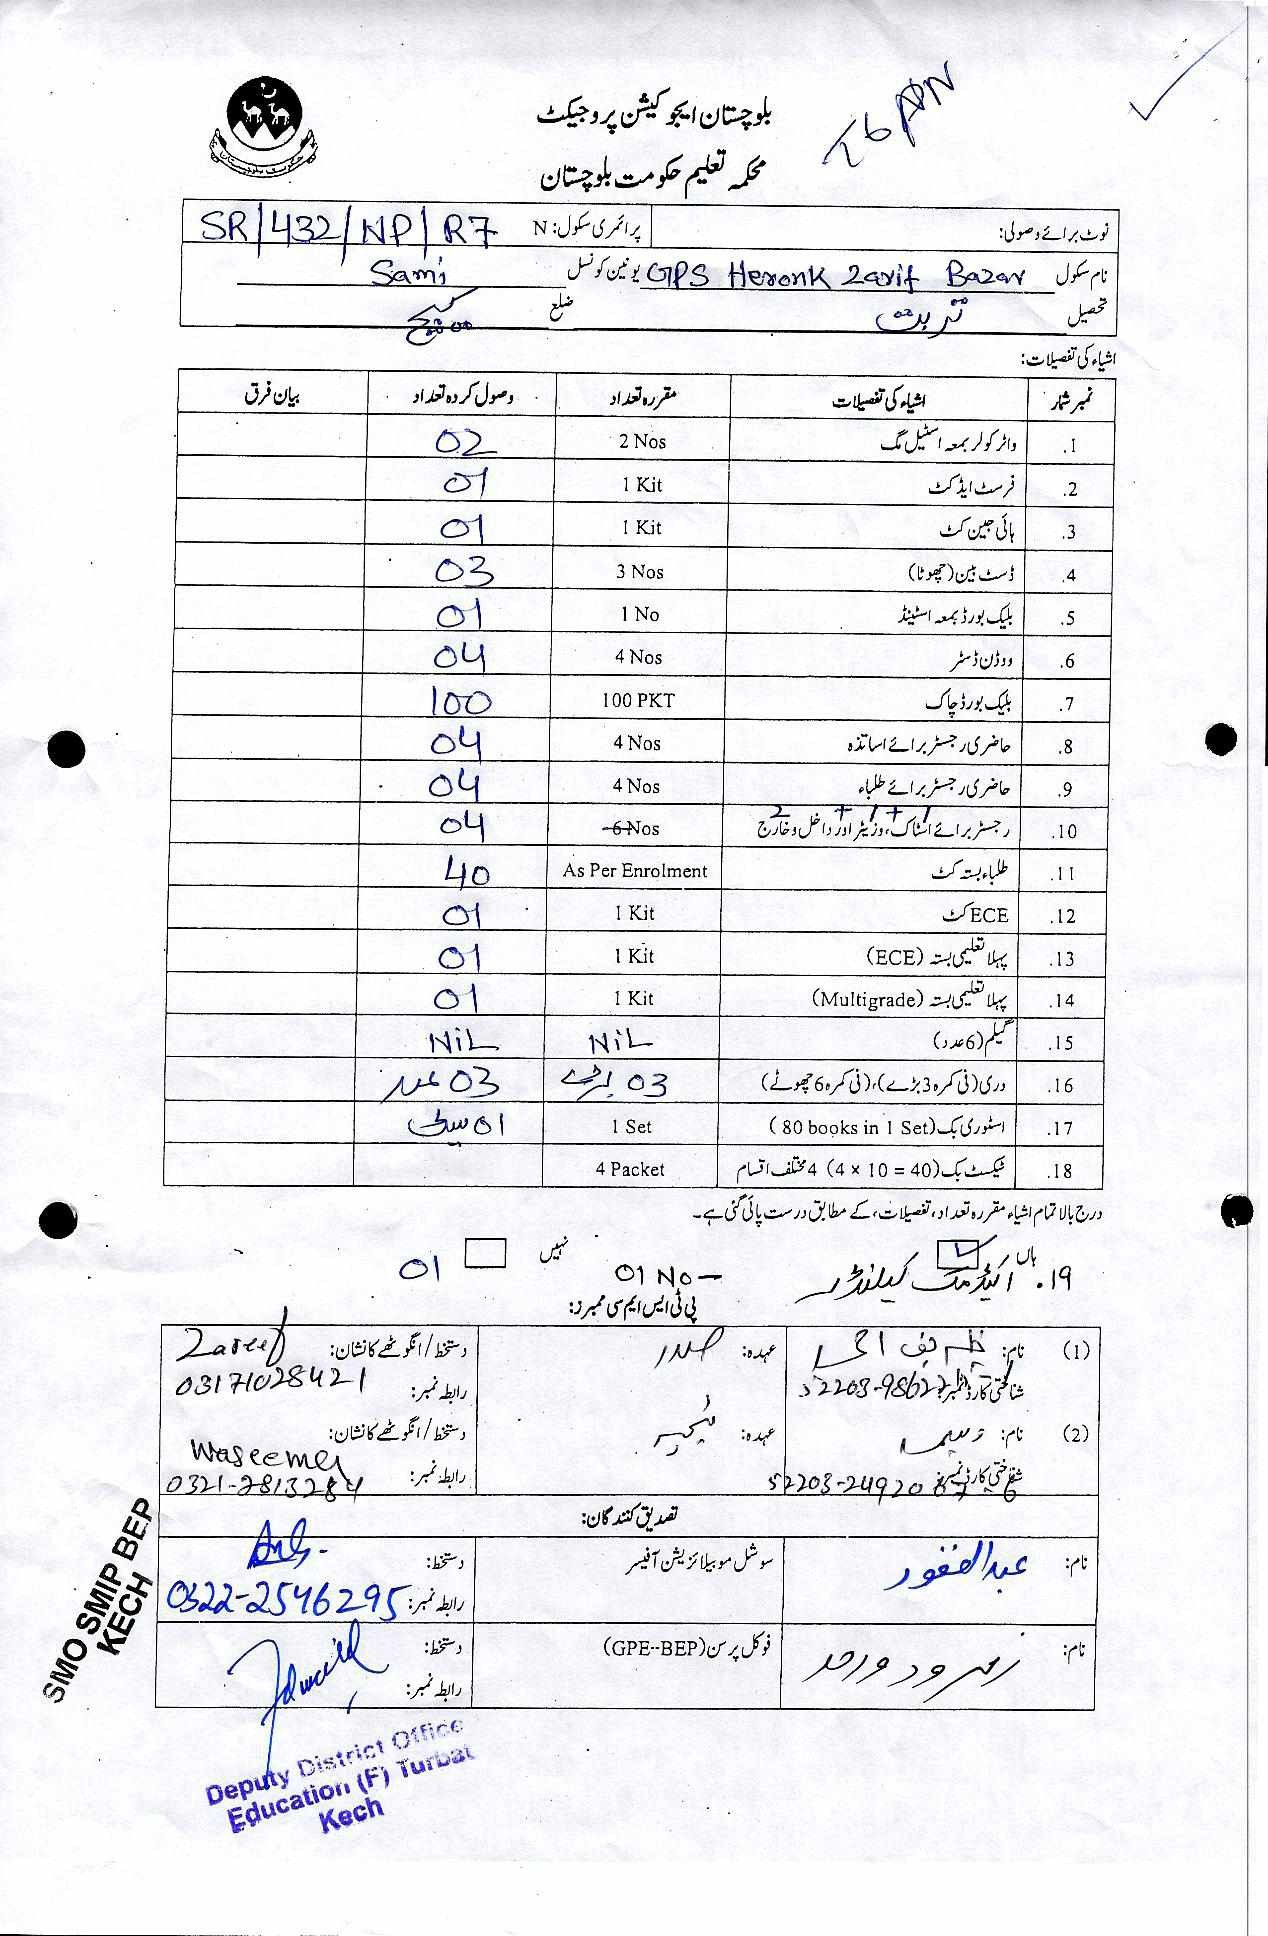 بلوچستان ایجوکیشن پروجیکٹ
محکمہ تعلیم حکومت بلوچستان
نوٹ برائے وصولی: پرائمری سکول: N SR/432/NP/R7
نام سکول GPS Heronk Zarif Bazar یونین کونسل Sami
تحصیل تربت ضلع کیچ
اشیاء کی تفصیلات:
نمبر شمار اشیاء کی تفصیلات مقررہ تعداد وصول کردہ تعداد بیان فرق
.1 واٹر کولر بمعہ اسٹیل مگ 2 Nos 02
.2 فرسٹ ایڈ کٹ 1 Kit 01
.3 ہائی جین کٹ 1 Kit 01
.4 ڈسٹ بین (چھوٹا) 3 Nos 03
.5 بلیک بورڈ بمعہ اسٹینڈ 1 No 01
.6 ووڈن ڈسٹر 4 Nos 04
.7 بلیک بورڈ چاک 100 PKT 100
.8 حاضری رجسٹر برائے اساتذہ 4 Nos 04
.9 حاضری رجسٹر برائے طلباء 4 Nos 04
2 + 1 + 1
.10 رجسٹر برائے اسٹاک، وزیٹر اور داخل و خارج 6 Nos 04
.11 طلباء بستہ کٹ As Per Enrolment 40
.12 ECE کٹ 1 Kit 01
.13 پہلا تعلیمی بستہ (ECE) 1 Kit 01
.14 پہلا تعلیمی بستہ (Multigrade) 1 Kit 01
.15 گیلم (6 عدد) NiL NiL
.16 دری (فی کمرہ 3 بڑے)، (فی کمرہ 6 چھوٹے) 03 بڑے 03 عدد
.17 اسٹوری بک (80 books in 1 Set) 1 Set 01 سیٹ
.18 ٹیکسٹ بک (4 × 10 = 40) 4 مختلف اقسام 4 Packet
درج بالا تمام اشیاء مقررہ تعداد، تفصیلات، کے مطابق درست پائی گئی ہے۔
ہاں نہیں
۱۹. اکیڈمک کیلنڈر 01 No 01
پی ٹی ایس ایم سی ممبرز:
(1) نام: ظریف احمد عہدہ: صدر دستخط/انگوٹھے کا نشان: Zareef
شناختی کارڈ نمبر: رابطہ نمبر: 03171028421
(2) نام: وسیمہ عہدہ: ٹیچر دستخط/انگوٹھے کا نشان: Waseema
شناختی کارڈ نمبر: رابطہ نمبر: 0321-2813284
تصدیق کنندگان:
نام: عبدالغفور سوشل موبیلائزیشن آفیسر دستخط:
رابطہ نمبر: 0322-2546295
نام: فوکل پرسن (GPE--BEP) دستخط:
رابطہ نمبر:
SMO SMIP BEP
KECH
Deputy District Office
Education (F) Turbat
Kech